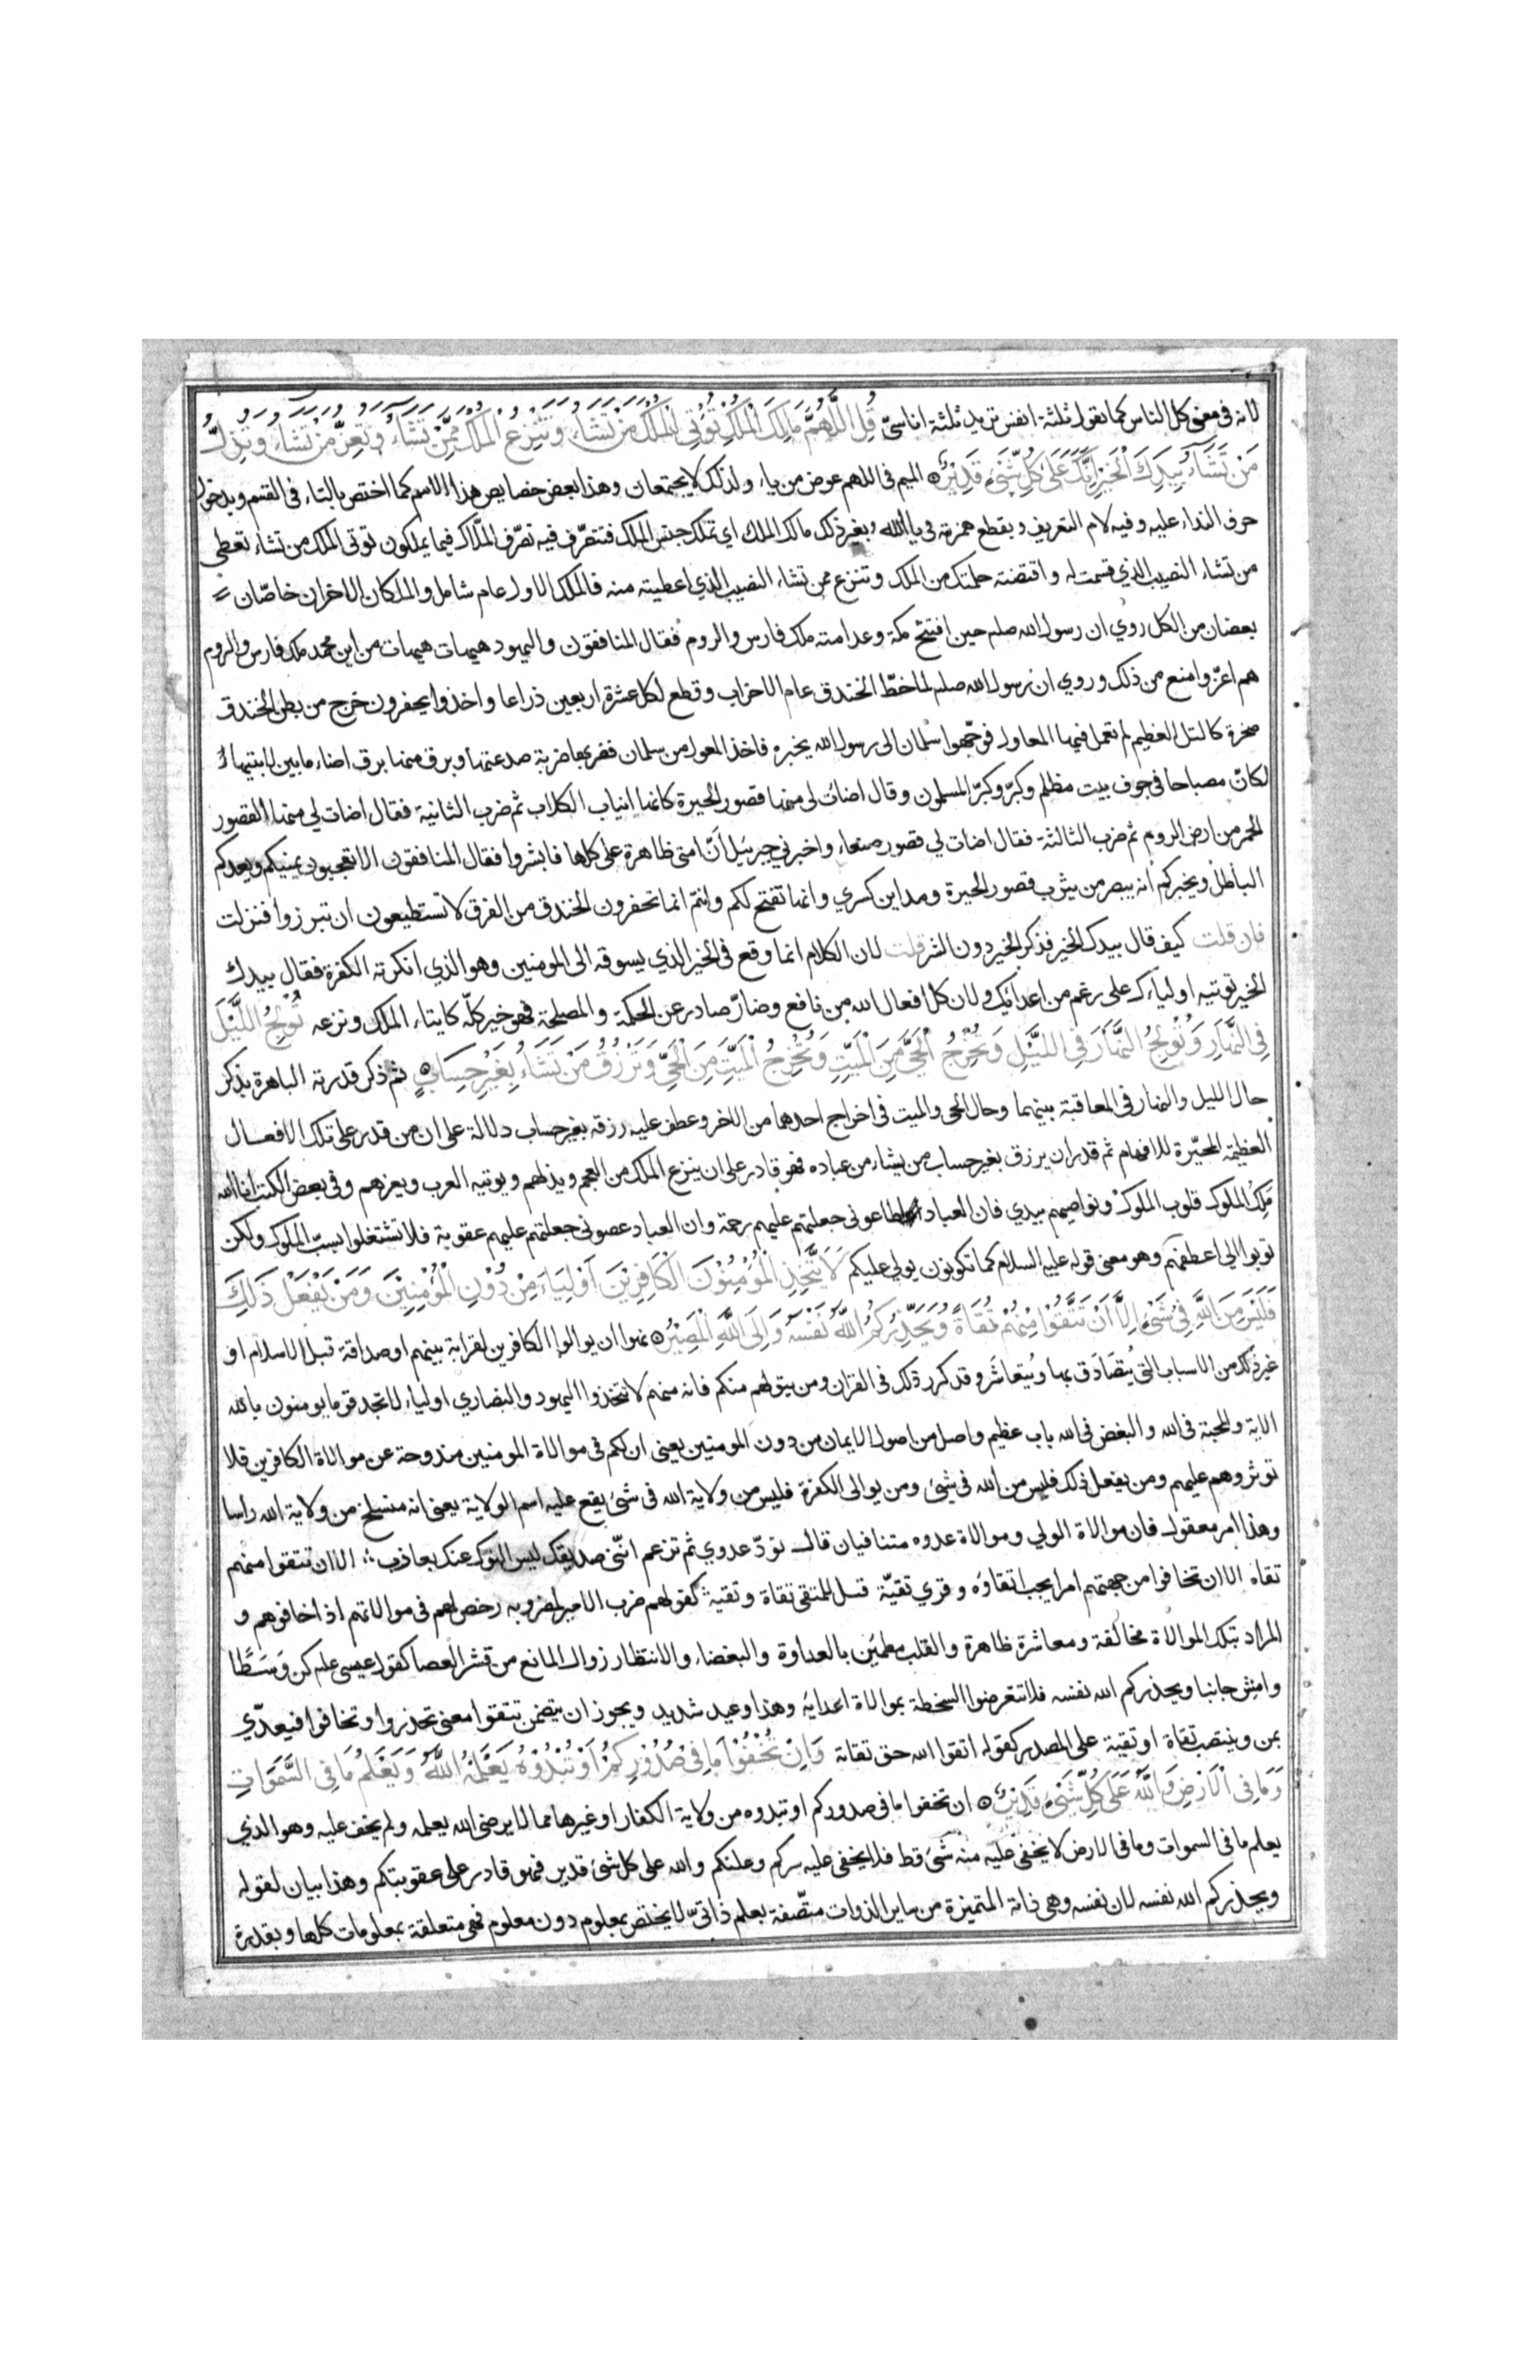 لانه في معنى كل الناس كما تقول ثلثة انفس تريد ثلثة اناسيّ قُلِ اللَّهُمَّ مَالِكَ الْمُلْكِ تُؤْتِي الْمُلْكَ مَنْ تَشَاءُ وَتَنْزِعُ الْمُلْكَ مِمَّنْ تَشَاءُ وَتُعِزُّ مَنْ تَشَاءُ وَتُذِلُّ
مَنْ تَشَاءُ بِيَدِكَ الْخَيْرُ إِنَّكَ عَلَىٰ كُلِّ شَيْءٍ قَدِيرٌ الميم في اللهم عوض من ياء ولذلك لا يجتمعان وهذا بعض خصايص هذا الاسم كما اختص بالتاء في القسم وبدخول
حرف النداء عليه وفيه لام التعريف وبقطع همزته في يا الله وبغير ذلك مالك الملك اي تملك جنس الملك فتتصرّف فيه تصرّف الملّاك فيما يملكون توتي الملك من تشاء تعطي
من تشاء النصيب الذي قسمت له واقتضته حكمتك من الملك وتنزع ممن تشاء النصيب الذي اعطيته منه فالملك الاول عام شامل والملكان الاخران خاصّان
بعضان من الكل روي ان رسول الله صلم حين افتتح مكة وعد امته ملك فارس والروم فقال المنافقون واليهود هيهات هيهات من اين لمحمد ملك فارس والروم
هم اعزّ وامنع من ذلك وروي ان رسول الله صلم لما خطّ الخندق عام الاحزاب وقطع لكل عشرة اربعين ذراعا واخذوا يحفرون خرج من بطن الخندق
صخرة كالتل العظيم لم تعمل فيها المعاول فوجّهوا سلمان الى رسول الله يخبره فاخذ المعول من سلمان فضربها ضربة صدعتها وبرق منها برق اضاء ما بين لابتيها
لكانّ مصباحا في جوف بيت مظلم وكبّر وكبّر المسلمون وقال اضات لي منها قصور الحيرة كانها انياب الكلاب ثم ضرب الثانية فقال اضات لي منها القصور
الحمر من ارض الروم ثم ضرب الثالثة فقال اضات لي قصور صنعاء واخبرني جبرئيل أنّ امتي ظاهرة على كلها فابشروا فقال المنافقون الا تعجبون يمنيكم ويعدكم
الباطل ويخبركم انه يبصر من يثرب قصور الحيرة ومداين كسري وانها تفتح لكم وانتم انما تحفرون الخندق من الفرق لا تستطيعون ان تبرزوا فنزلت
فان قلت كيف قال بيدك الخير فذكر الخير دون الشر قلت لان الكلام انما وقع في الخير الذي يسوقه الى المومنين وهو الذي انكرته الكفرة فقال بيدك
الخير توتيه اولياءك على رغم من اعدائك ولان كل افعال الله من نافع وضارّ صادر عن الحكمة والمصلحة فهو خير كلّه كايتاء الملك ونزعه تُولِجُ اللَّيْلَ
فِي النَّهَارِ وَتُولِجُ النَّهَارَ فِي اللَّيْلِ وَتُخْرِجُ الْحَيَّ مِنَ الْمَيِّتِ وَتُخْرِجُ الْمَيِّتَ مِنَ الْحَيِّ وَتَرْزُقُ مَنْ تَشَاءُ بِغَيْرِ حِسَابٍ ثم ذكر قدرته الباهرة بذكر
حال الليل والنهار في المعاقبة بينهما وحال الحي والميت في اخراج احدهما من الاخر وعطف عليه رزقه بغير حساب دلالة على ان من قدر على تلك الافعال
العظيمة المحيّرة للافهام ثم قدر ان يرزق بغير حساب من يشاء من عباده فهو قادر على ان ينزع الملك من العجم ويذلهم ويوتيه العرب ويعزهم وفي بعض الكتب انا الله
ملك الملوك قلوب الملوك ونواصيهم بيدي فان العباد اطاعوني جعلتهم عليهم رحمة وان العباد عصوني جعلتهم عليهم عقوبة فلا تشتغلوا بسبّ الملوك ولكن
توبوا الي اعطفهم وهو معنى قوله عليه السلام كما تكونون يولي عليكم لَا يَتَّخِذِ الْمُؤْمِنُونَ الْكَافِرِينَ أَوْلِيَاءَ مِنْ دُونِ الْمُؤْمِنِينَ وَمَنْ يَفْعَلْ ذَٰلِكَ
فَلَيْسَ مِنَ اللَّهِ فِي شَيْءٍ إِلَّا أَنْ تَتَّقُوا مِنْهُمْ تُقَاةً وَيُحَذِّرُكُمُ اللَّهُ نَفْسَهُ وَإِلَى اللَّهِ الْمَصِيرُ نهوا ان يوالوا الكافرين لقرابة بينهم او صداقة قبل الاسلام او
غير ذلك من الاسباب التي يُتصَادَق بها ويُتعَاشَر وقد كرر ذلك في القران ومن يتولهم منكم فانه منهم لا تتخذوا اليهود والنصاري اولياء لا تجد قوما يومنون بالله
الاية والمحبة في الله والبغض في الله باب عظيم واصل من اصول الايمان من دون المومنين يعني ان لكم في موالاة المومنين مندوحة عن موالاة الكافرين فلا
توثروهم عليهم ومن يفعل ذلك فليس من الله في شئ ومن يوالي الكفرة فليس من ولاية الله في شئ يقع عليه اسم الولاية يعني انه منسلخ من ولاية الله راسا
وهذا امر معقول فان موالاة الولي وموالاة عدوه متنافيان قال تودّ عدوي ثم تزعم انّني صديقك ليس النوك عنك بعازب الا ان تتقوا منهم
تقاه الا ان تخافوا من جهتهم امرا يجب اتقاؤه وقري تقيّة قيل للمتقى تقاة وتقية كقولهم ضرب الامير لمضروبه رخص لهم في موالاتهم اذا خافوهم و
المراد بتلك الموالاة مخالفة ومعاشرة ظاهرة والقلب مطمئن بالعداوة والبغضاء والانتظار زوال المانع من قشر العصا كقول عيسى علم كن وَسَطًا
وامش جانبا ويحذركم الله نفسه فلا تتعرضوا السخطة بموالاة اعدائه وهذا وعيد شديد ويجوز ان يتضمن تتقوا معنى تحذروا وتخافوا فيعدّي
بمن وينتصب تقاة او تقية على المصدر كقوله اتقوا الله حق تقاتة وَإِنْ تُخْفُوا مَا فِي صُدُورِكُمْ أَوْ تُبْدُوهُ يَعْلَمْهُ اللَّهُ وَيَعْلَمُ مَا فِي السَّمَوَاتِ
وَمَا فِي الْأَرْضِ وَاللَّهُ عَلَىٰ كُلِّ شَيْءٍ قَدِيرٌ ان تخفوا ما في صدوركم او تبدوه من ولاية الكفار او غيرها مما لا يرضى الله يعلمه ولم يخف عليه وهو الذي
يعلم ما في السموات وما في الارض لا يخفى عليه منه شئ قط فلا يخفى عليه سركم وعلنكم والله على كل شئ قدير فهو قادر على عقوبتكم وهذا بيان لقوله
ويحذركم الله نفسه لان نفسه وهي ذاته المتميزة من ساير الذوات متّصفة بعلم ذاتيّ لا يختص بمعلوم دون معلوم فهي متعلقة بمعلومات كلها وبقدرة